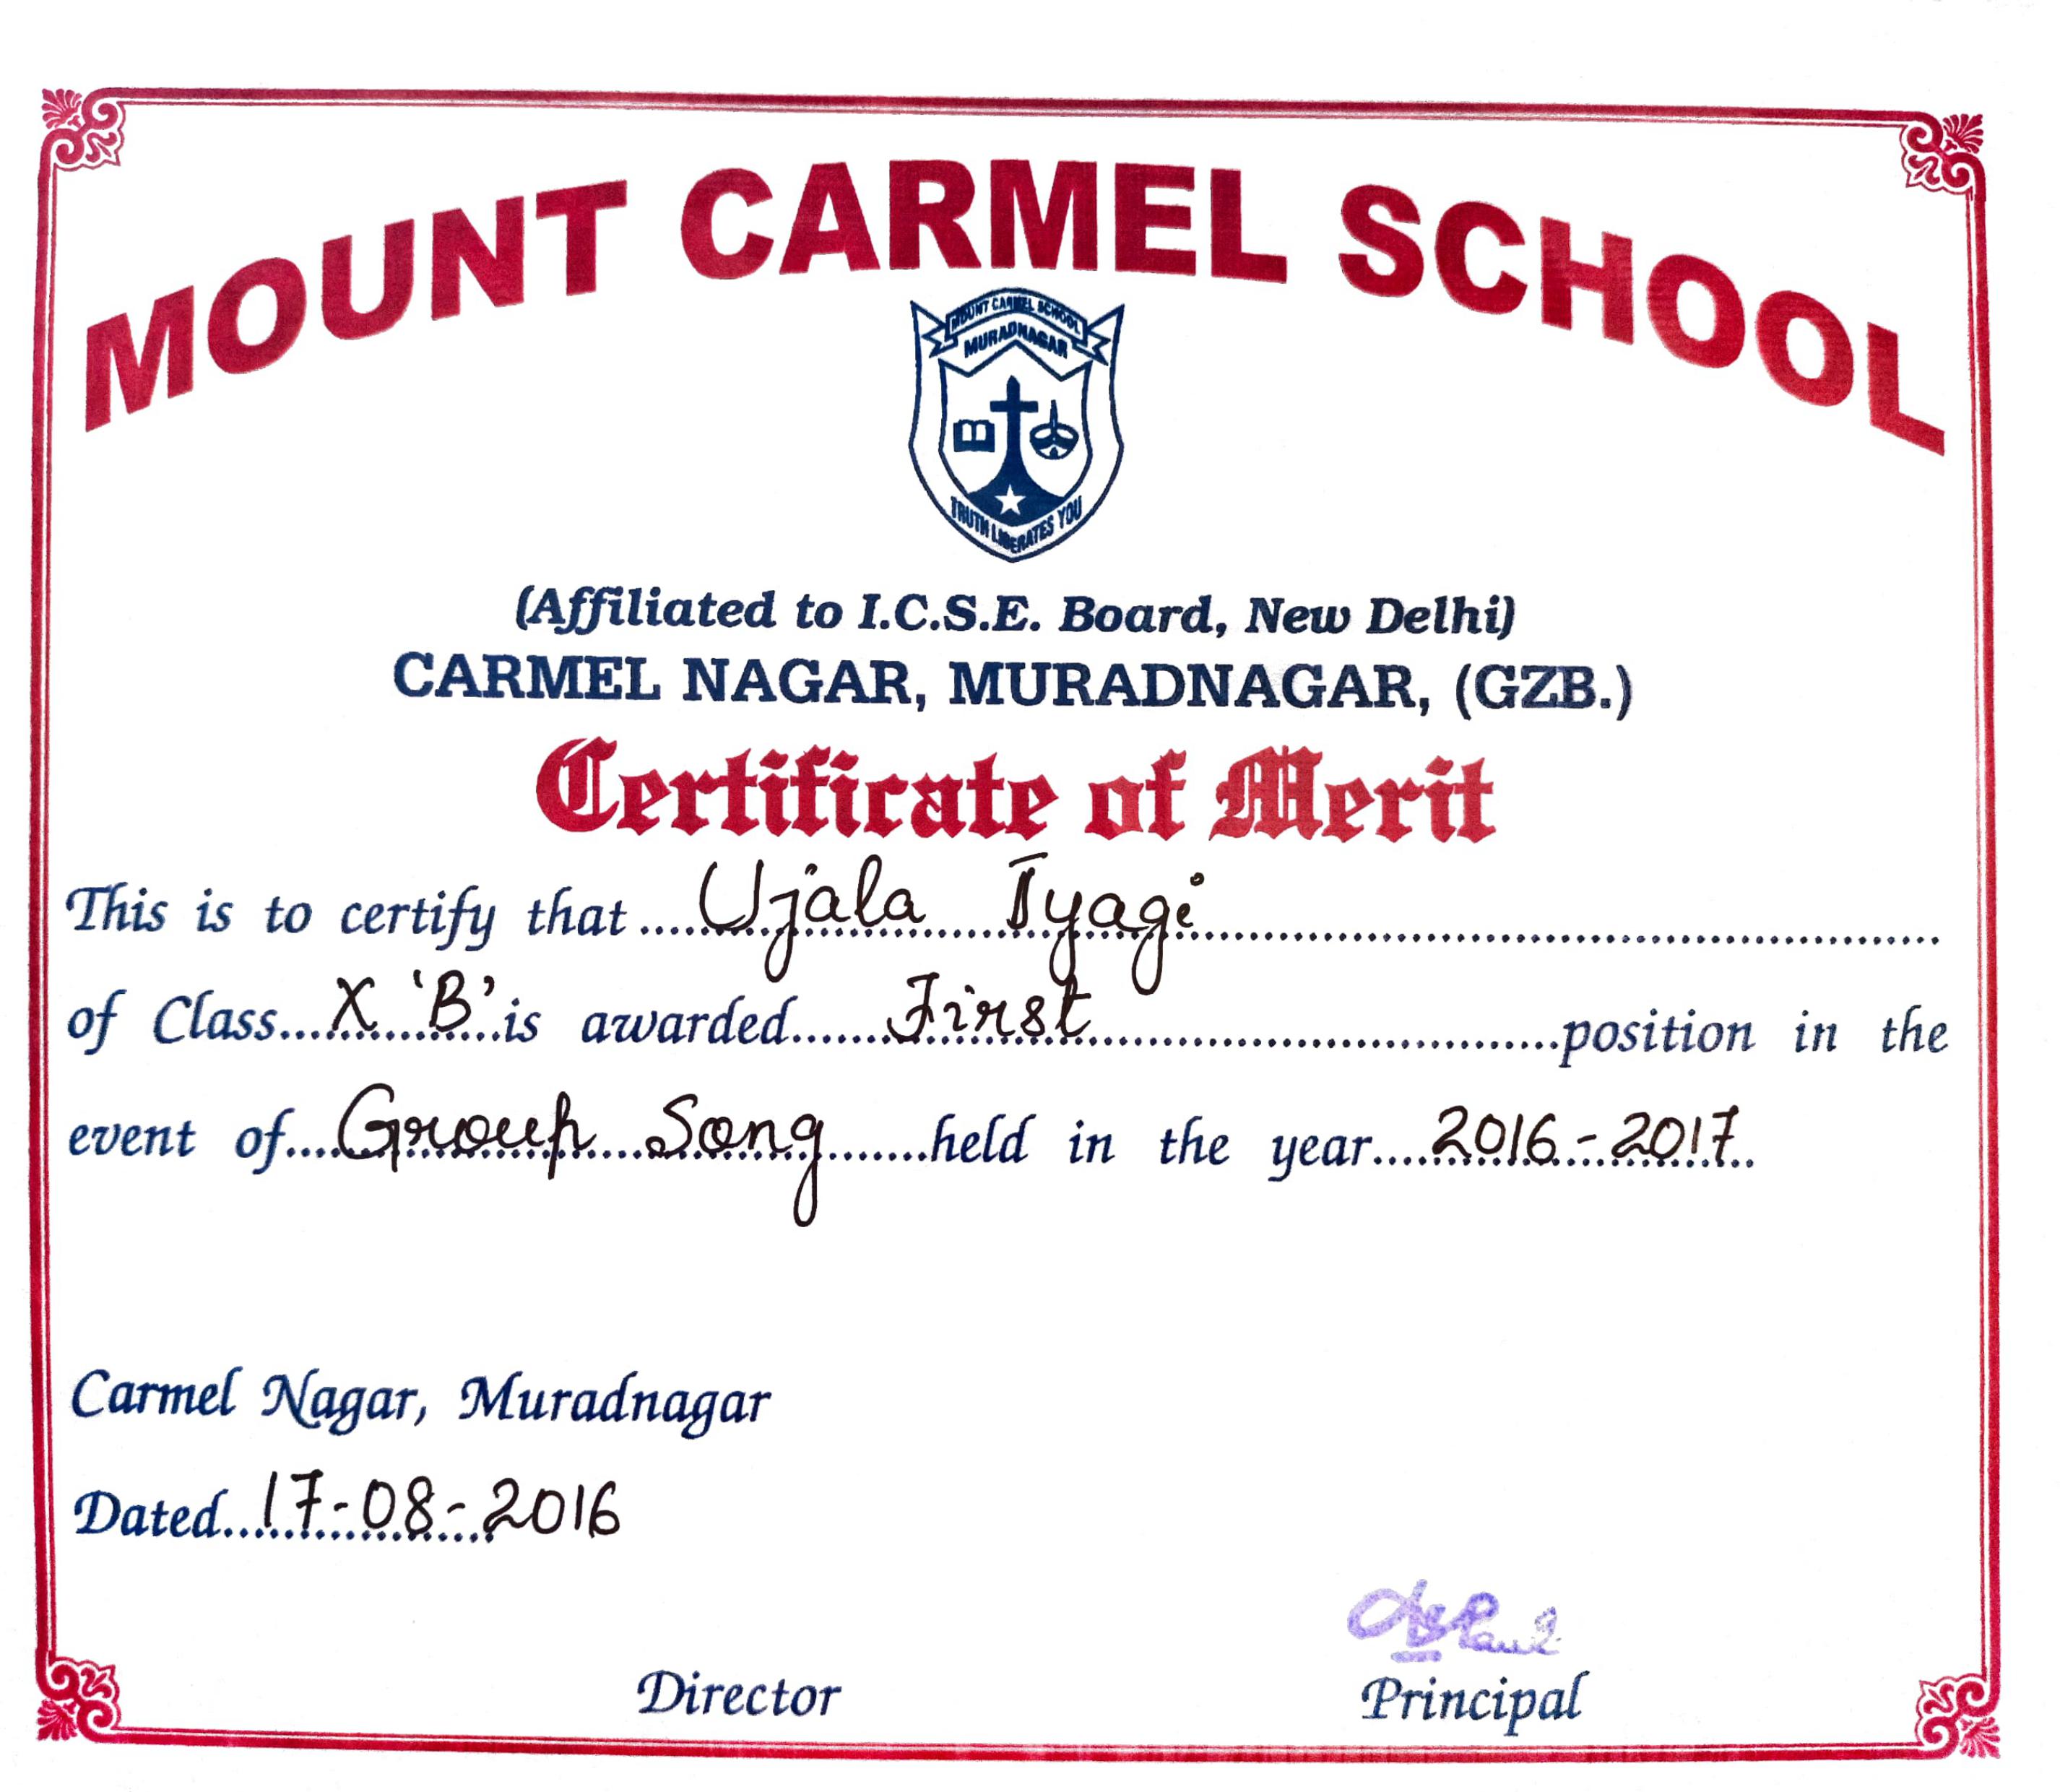 MOUNT CARMEL SCHOOL
MOUNT CARMEL SCHOOL
MURADNAGAR
TRUTH LIBERATES YOU
(Affiliated to I.C.S.E. Board, New Delhi)
CARMEL NAGAR, MURADNAGAR, (GZB.)
Certificate of Merit
This is to certify that Ujala Tyagi
of Class X 'B' is awarded First position in the
event of Group Song held in the year 2016-2017
Carmel Nagar, Muradnagar
Dated 17-08-2016
Director Principal